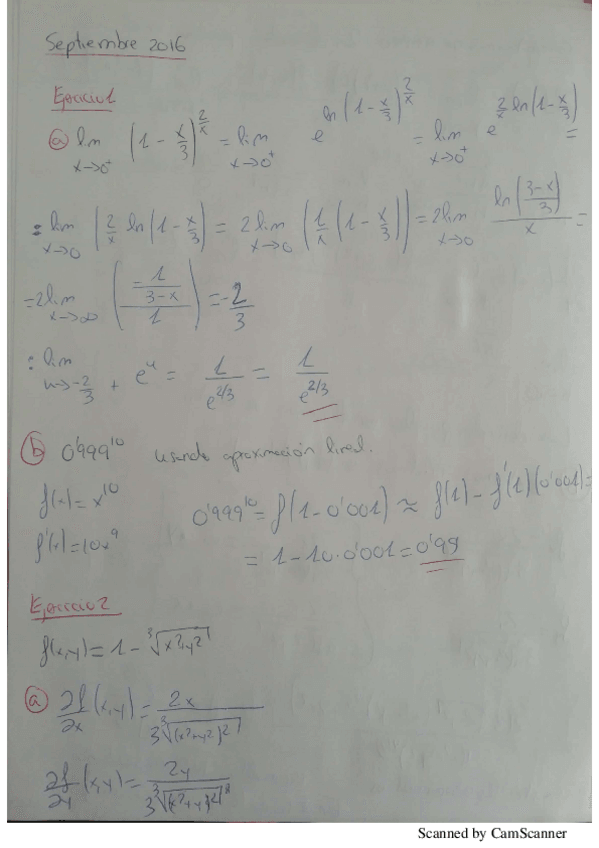 Septiembre 2016
Ejercicio 1
a) lim x→0⁺ (1 - x/3)^(2/x) = lim x→0⁺ e^(ln(1 - x/3)^(2/x)) = lim x→0⁺ e^(2/x ln(1 - x/3)) =
= lim x→0 (2/x ln(1 - x/3) = 2 lim x→0 (1/x (1 - x/3)) = 2 lim x→0 ln((3-x)/3) / x =
= 2 lim x→∞ ((-1/(3-x))/1) = -2/3
: lim u→-2/3 + e^u = 1/e^(2/3) = 1/e^(2/3)
b) 0'999^10 usando aproximación lineal.
f(x) = x^10
0'999^10 = f(1 - 0'001) ≈ f(1) - f'(1)(0'001) =
f'(x) = 10x^9
= 1 - 10·0'001 = 0'99
Ejercicio 2
f(x,y) = 1 - ∛(x²+y²)
a) ∂f/∂x (x,y) = 2x / 3∛((x²+y²)²)
∂f/∂y (x,y) = 2y / 3∛((x²+y²)²)
Scanned by CamScanner